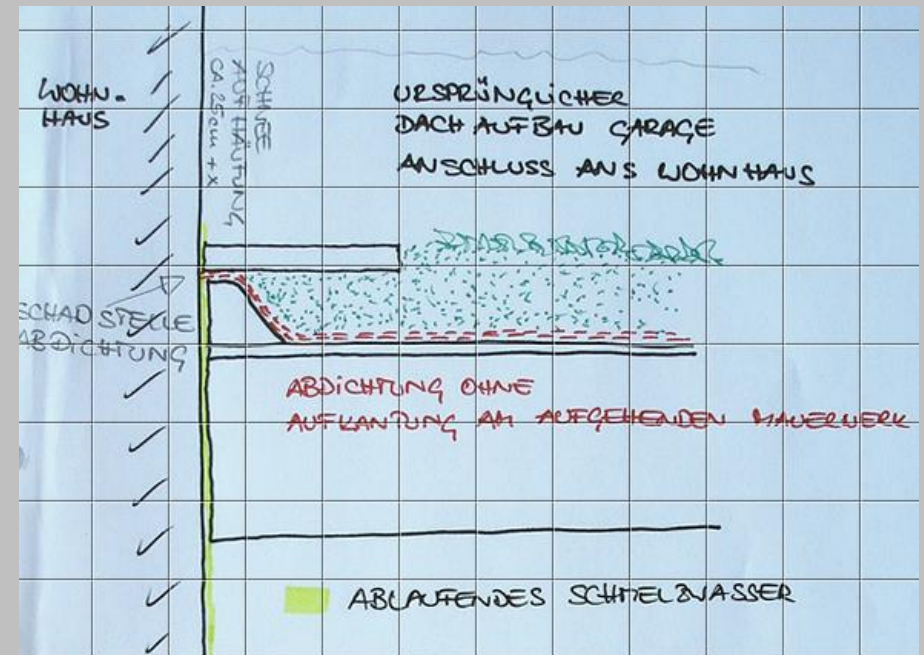 WOHN-
HAUS
SCHNEE
AUFHÄUFUNG
CA. 25cm + X
URSPRÜNGLICHER
DACHAUFBAU GARAGE
ANSCHLUSS ANS WOHNHAUS
SCHADSTELLE
ABDICHTUNG
ABDICHTUNG OHNE
AUFKANTUNG AM AUFGEHENDEN MAUERWERK
ABLAUFENDES SCHMELZWASSER